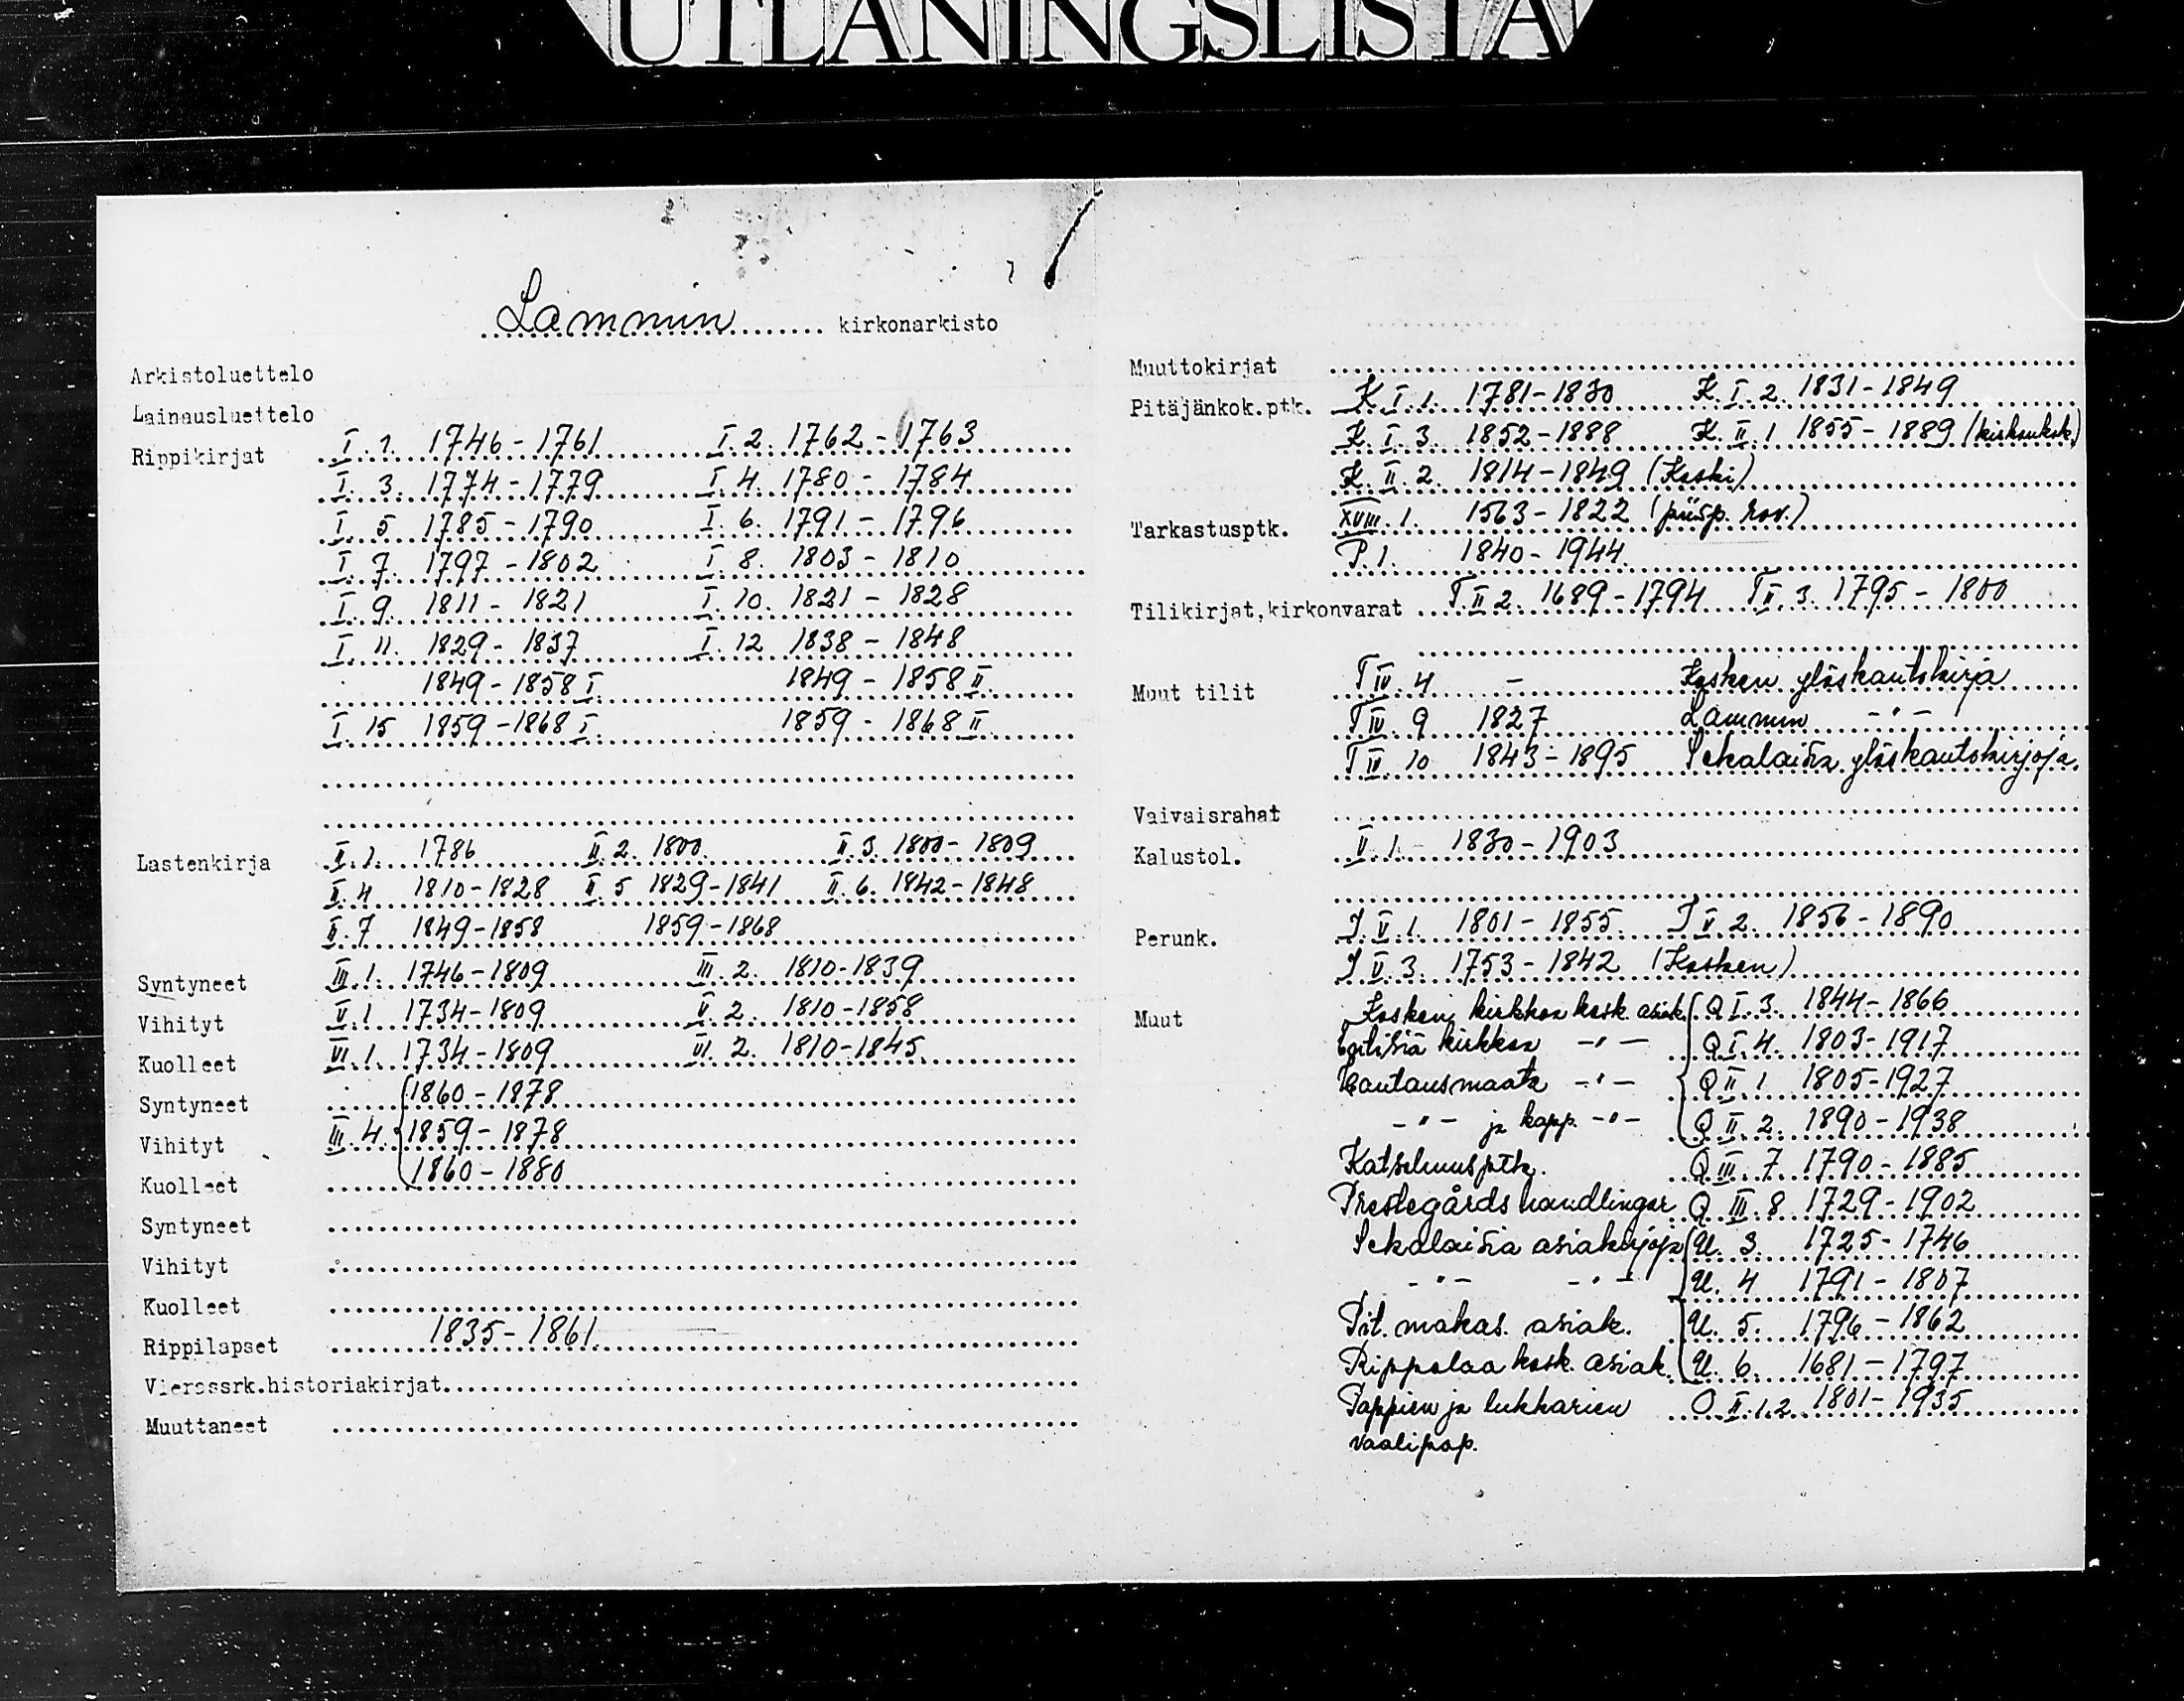 UTLÅNINGSLISTA
Lammin kirkonarkisto
Arkistoluettelo
Lainausluettelo
Rippikirjat I. 1. 1746-1761 I. 2. 1762-1763
I. 3. 1774-1779 I. 4. 1780-1784
I. 5 1785-1790 I. 6. 1791-1796
I. 7. 1797-1802 I. 8. 1803-1810
I. 9. 1811-1821 I. 10. 1821-1828
I. 11. 1829-1837 I. 12 1838-1848
1849-1858 I. 1849-1858 II.
I. 15 1859-1868 I. 1859-1868 II.
Lastenkirja II. 1. 1786 II. 2. 1800. II. 3. 1800-1809
II. 4 1810-1828 II. 5 1829-1841 II. 6. 1842-1848
II. 7 1849-1858 1859-1868
Syntyneet III. 1. 1746-1809 III. 2. 1810-1839
Vihityt V. 1 1734-1809 V. 2. 1810-1858
Kuolleet VI. 1. 1734-1809 VI. 2. 1810-1845
Syntyneet 1860-1878
Vihityt III. 4. 1859-1878
Kuolleet 1860-1880
Syntyneet
Vihityt
Kuolleet
Rippilapset 1835-1861
Vierassrk.historiakirjat
Muuttaneet
Muuttokirjat
Pitäjänkok.ptk. K. I. 1. 1781-1830 K. I. 2. 1831-1849
K. I. 3. 1852-1888 K. II. 1 1855-1889 (kirkonkok.)
K. II. 2. 1814-1849 (Koski)
Tarkastusptk. XVIII. 1. 1563-1822 (piisp. rov.)
P. 1. 1840-1944.
Tilikirjat, kirkonvarat T. II 2. 1689-1794 T II. 3. 1795-1800
Muut tilit T IV. 4 - Kosken yläskantokirja
T IV. 9 1827 Lammin -"-
T IV. 10 1843-1895 Sekalaisia yläskantokirjoja.
Vaivaisrahat
Kalustol. II. 1. 1830-1903
Perunk. J. V. 1. 1801-1855. J V. 2. 1856-1890
J V. 3. 1753-1842 (Kosken)
Muut Kosken kirkkoa kosk. asiak. Q I. 3. 1844-1866
kirkkoa -"- Q I. 4. 1803-1917
hautausmaata -"- Q II. 1 1805-1927
-"- ja kapp. -"- Q II. 2. 1890-1938
Katselmusptk. Q III. 7 1790-1885
Prestegårds handlingar Q III. 8 1729-1902
Sekalaisia asiakirjoja U. 3. 1725-1746
-"- -"- U. 4 1791-1807
Pit. makas. asiak. U. 5. 1796-1862
Rippolaa kosk. asiak. U. 6. 1681-1797
Pappien ja lukkarien O II. 1.2 1801-1935
vaalipap.